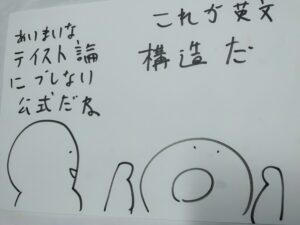 これが英文
構造だ
あいまいな
テイスト論
にブレない
公式だね